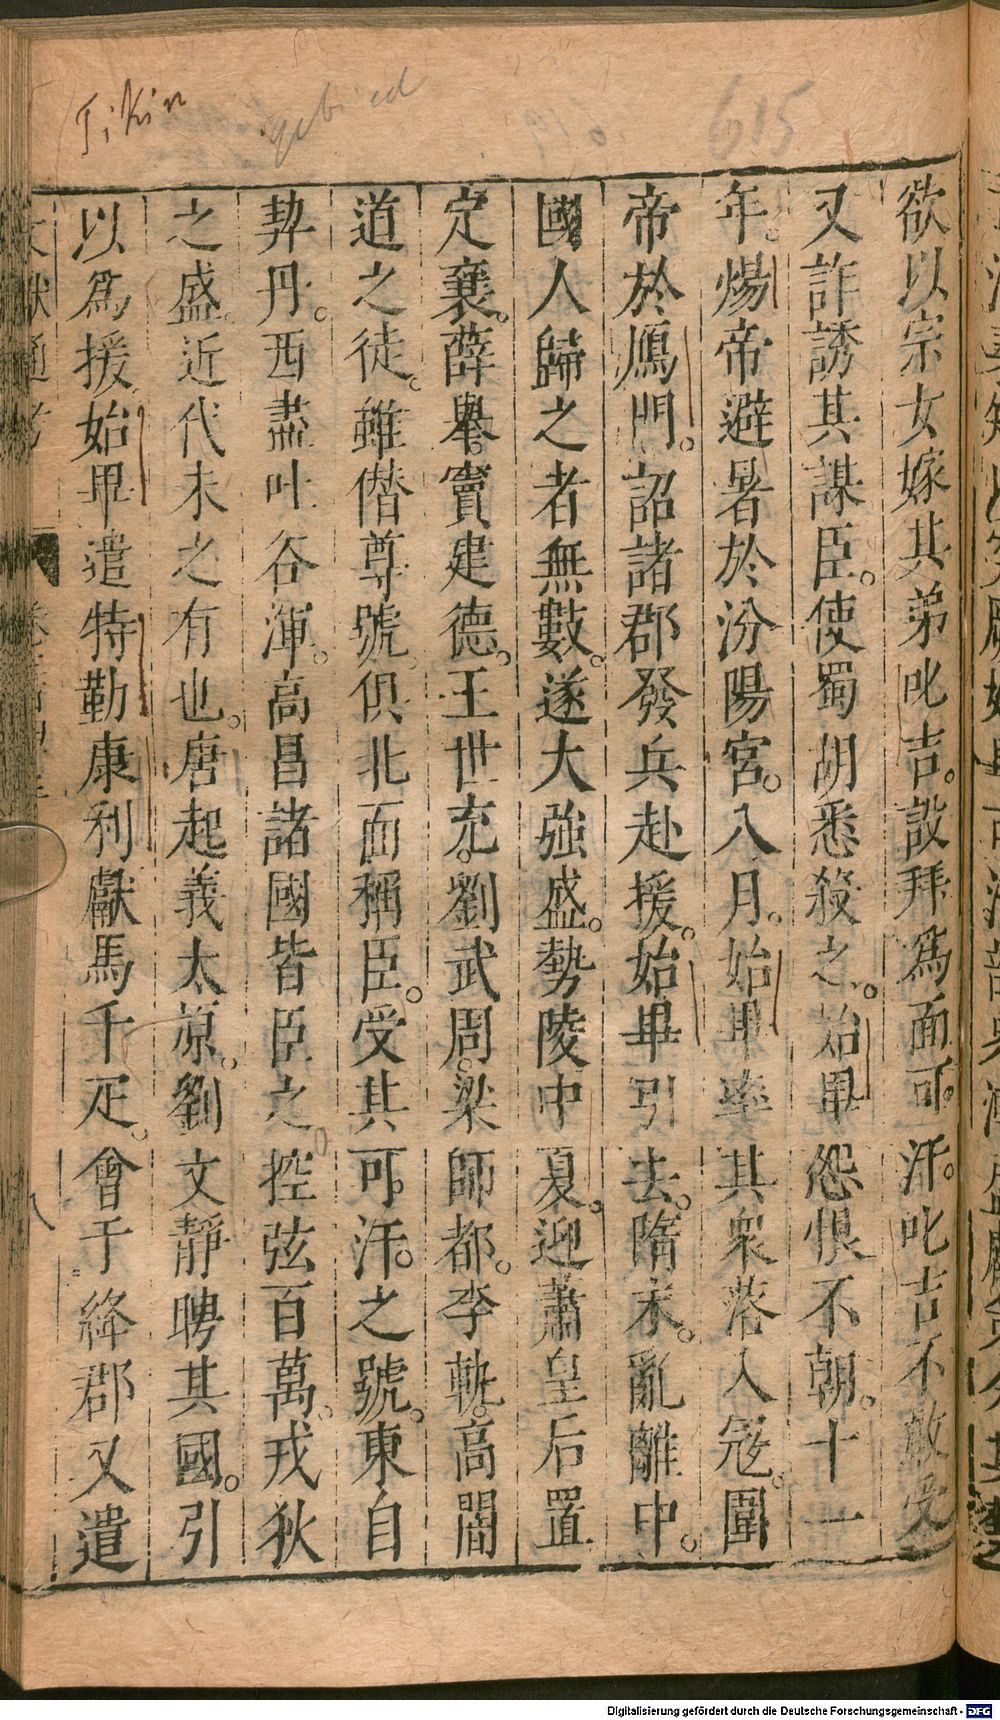 Tikin
gebied
615
欲以宗女嫁其弟叱吉。設拜爲面可。汗。叱吉不敢受
又詐誘其謀臣。使蜀胡悉殺之。始畢怨恨不朝。十一
年。煬帝避暑於汾陽宮。八月。始畢率其衆落入冦。圍
帝於鴈門。詔諸郡發兵赴援。始畢引去。隋末。亂離中。
國人歸之者無數。遂大強盛。勢陵中夏。迎蕭皇后置
定襄。薛舉。竇建德。王世充。劉武周。梁師都。李軌。高開
道之徒。雖僭尊號。俱北面稱臣。受其可汗。之號。東自
契丹。西盡吐谷渾。高昌諸國皆臣之。控弦百萬。戎狄
之盛。近代未之有也。唐起義太原。劉文靜聘其國。引
以爲援。始畢遣特勒康利獻馬千疋。會于絳郡又遣
八
Digitalisierung gefördert durch die Deutsche Forschungsgemeinschaft - DFG